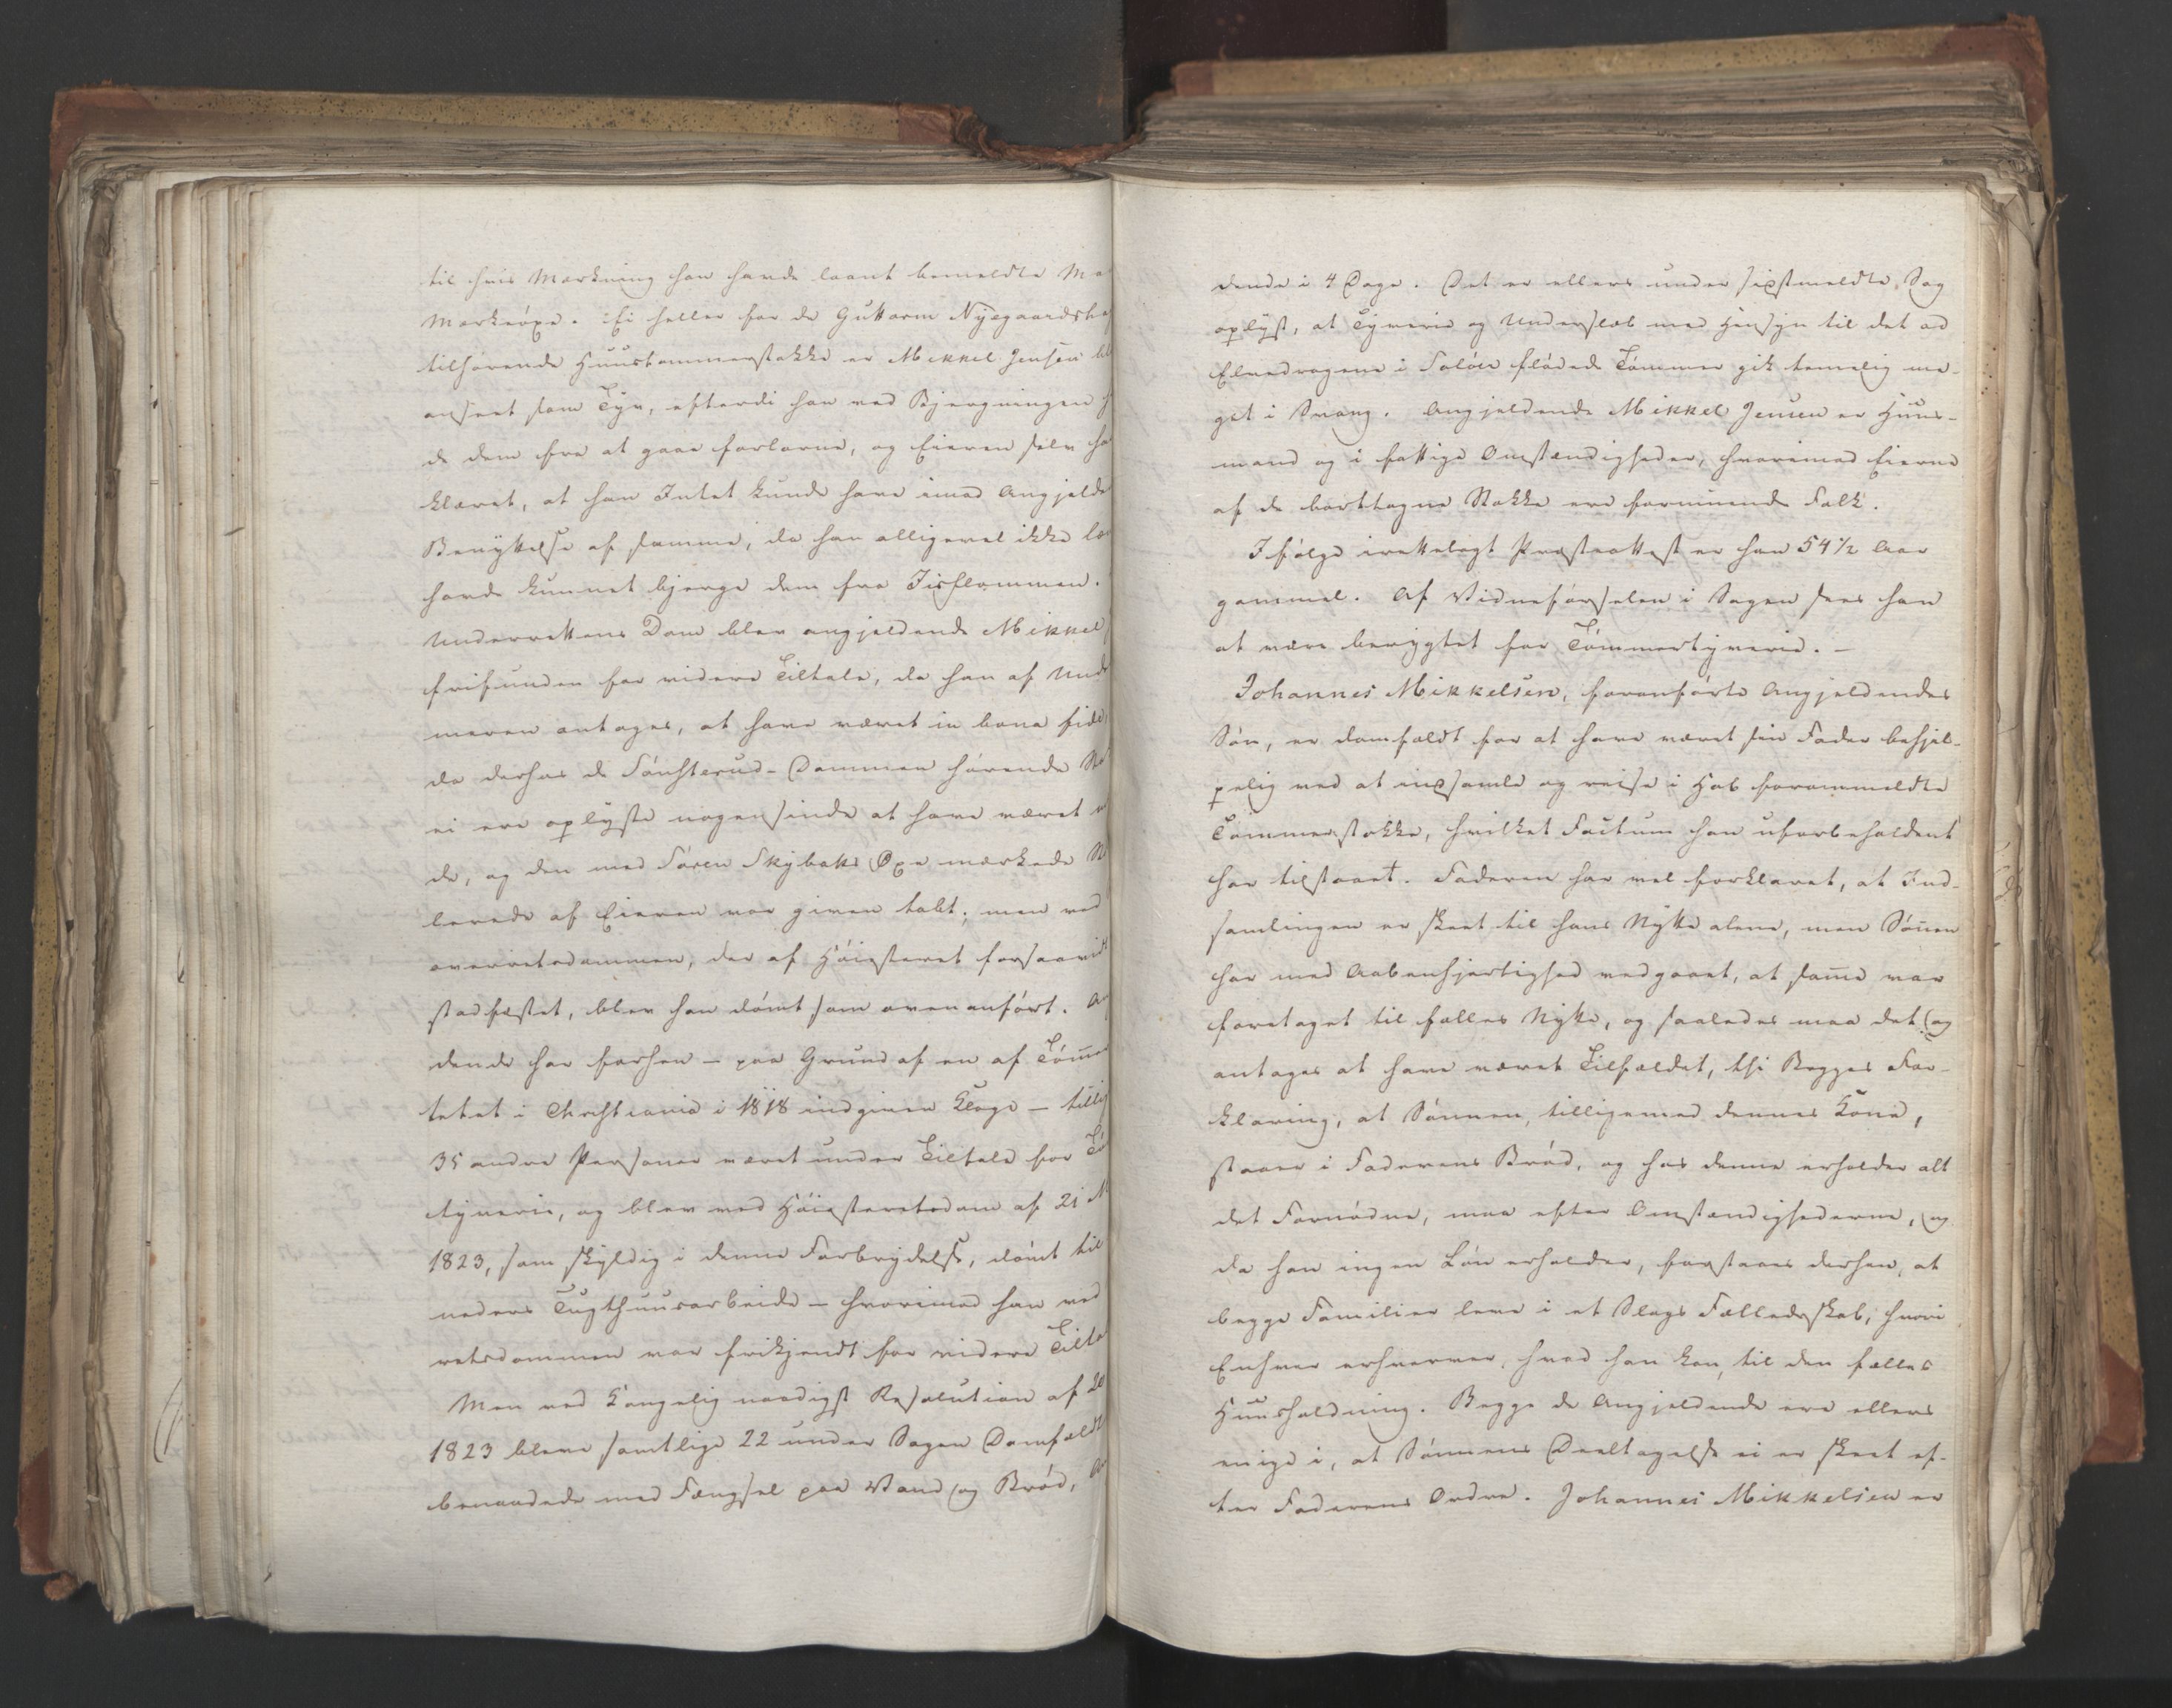 til hvis Mærkning han havde laant bemeldte
Mærkeøxe. Ei heller for de Guttorm Nysgaards
tilhørende Huustømmerstokke er Mikkel Jensen
anseet som Tyv, efterdi han ved Bjergningen
de dem fra at gaae forlorne, og Eieren selv
klæret, at han Intet kunde have imod Angjelde
Benyttelse af samme, da han alligevel ikke
havde kunnet bjerge dem fra Iisflommen.
Underrettens Dom blev angjeldende Mikkel
frifunden for videre Tiltale, da han af
meren antages, at have været in bona fide,
da derhos de Dammen hørende
ei ere oplyste nogensinde at have været
de, og den med Søren Skybaks Øxe mærkede
lerede af Eieren var given tabt; men ved
overretsdommen, der af Høiesteret forsaavidt
stadfæstet, blev han dømt som ovenanført.
dende har forhen – paa Grund af en af
tetet i Christiania i 1818 indgiven Klage –
35 andre Personer været under Tiltale for
tyverie, og blev ved Høiesteretsdom af 21
1823, som skyldig i denne Forbrydelse, dømt til
neders Tugthuusarbeide – hvorimod han ved
retsdommen var frikjendt for videre
Men ved Kongelig naadigst Resolution af
1823 bleve samtlige 22 under Sagen Domfældte
benaadede med Fængsel paa Vand og Brød,
dende i 4 Dage. Det er ellers under sidstmeldte Sag
oplyst, at Tyverie og Underslæb med Hensyn til det ad
Elvedragene i Soløer flødede Tømmer gik temmelig me-
get i Svang. Angjeldende Mikkel Jensen er Huus-
mand og i fattige Omstændigheder, hvorimod Eierne
af de borttagne Stokke ere formuende Folk.
Ifølge irettelagt Præsteattest er han 54 1/2 Aar
gammel. Af Vidneførselen i Sagen sees han
at være berygtet for Tømmertyverie. –
Johannes Mikkelsen, foranførte Angjeldendes
Søn, er domfældt for at have været sin Fader behjel-
pelig ved at indsamle og reise i Hob forommeldte
Tømmerstokke, hvilket Factum han uforbeholdent
har tilstaaet. Faderen har vel forklaret, at Ind-
samlingen er skeet til hans Nytte alene, men Sønnen
har med Aabenhjertighed vedgaaet, at same var
foretaget til fælles Nytte, og saaledes maa det og
antages at have været Tilfældet, thi Begges For-
klaring, at Sønnen, tilligemed dennes Kone,
staaer i Faderens Brød, og hos denne erholder alt
det Fornødne, maa efter Omstændighederne, og
da han ingen Løn erholder, forstaaes derhen, at
begge Familier leve i et Slags Fælledsskab, hvori
Enhver erhverver, hvad han kan, til den fælles
Huusholdning. Begge de Angjeldende ere ellers
enige i, at Sønnens Deeltagelse ei er skeet ef-
ter Faderens Ordre. Johannes Mikkelsen er